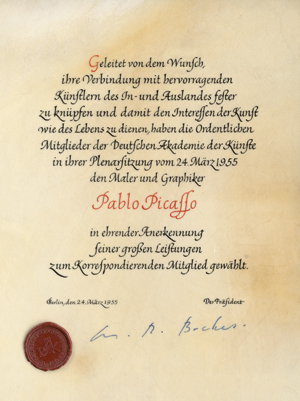 Geleitet von dem Wunsch,
ihre Verbindung mit hervorragenden
Künstlern des In- und Auslandes fester
zu knüpfen und damit den Interessen der Kunst
wie des Lebens zu dienen, haben die Ordentlichen
Mitglieder der Deutschen Akademie der Künste
in ihrer Plenarsitzung vom 24. März 1955
den Maler und Graphiker
Pablo Picasso
in ehrender Anerkennung
seiner großen Leistungen
zum Korrespondierenden Mitglied gewählt.
Berlin, den 24. März 1955 Der Präsident